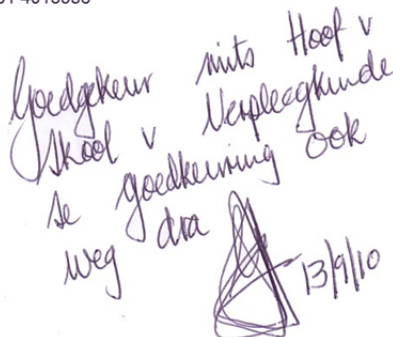 Goedgekeur mits Hoof v
Skool v Verpleegkunde
se goedkeuring ook
weg dra
13/9/10